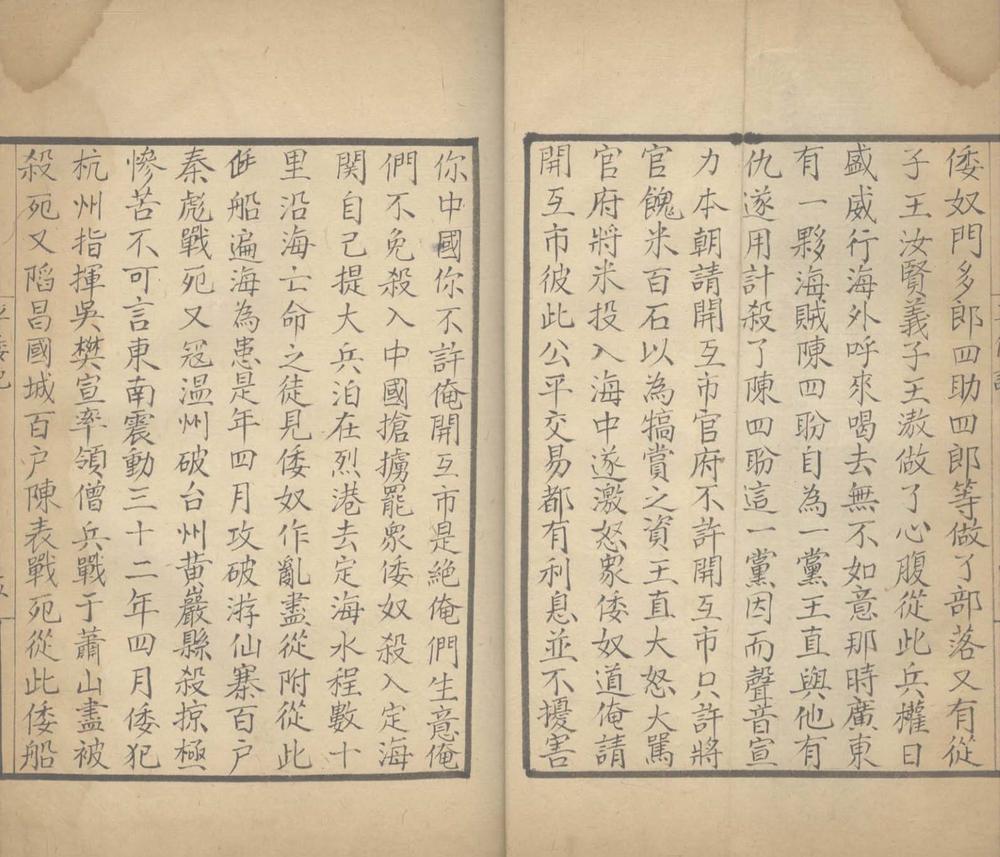 倭奴門多郎四助四郎等做了部落又有從
子王汝賢義子王滶做了心腹從此兵權日
盛威行海外呼來喝去無不如意那時廣東
有一夥海賊陳四盼自為一黨王直與他有
仇遂用計殺了陳四盼這一黨因而聲音宣
力本朝請開互市官府不許開互市只許將
官餽米百石以為犒賞之資王直大怒大罵
官府將米投入海中遂激怒眾倭奴道俺請
開互市彼此公平交易都有利息並不擾害
你中國你不許俺開互市是絕俺們生意俺
們不免殺入中國搶擄罷眾倭奴殺入定海
関自己提大兵泊在烈港去定海水程數十
里沿海亡命之徒見倭奴作亂盡從附從此
倭船遍海為患是年四月攻破游仙寨百戶
秦彪戰死又冦温州破台州黃巖縣殺掠極
慘苦不可言東南震動三十二年四月倭犯
杭州指揮吳樊宣率領僧兵戰于蕭山盡被
殺死又䧟昌國城百户陳表戰死從此倭船
平倭記